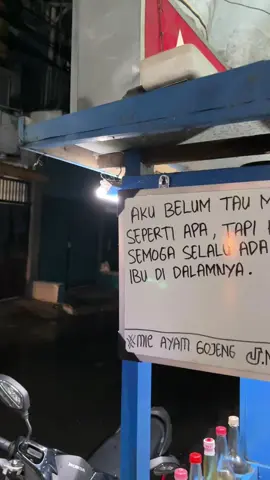 AKU BELUM TAU
SEPERTI APA, TAPI
SEMOGA SELALU ADA
IBU DI DALAMNYA.
MIE AYAM GOJENG
HONDA